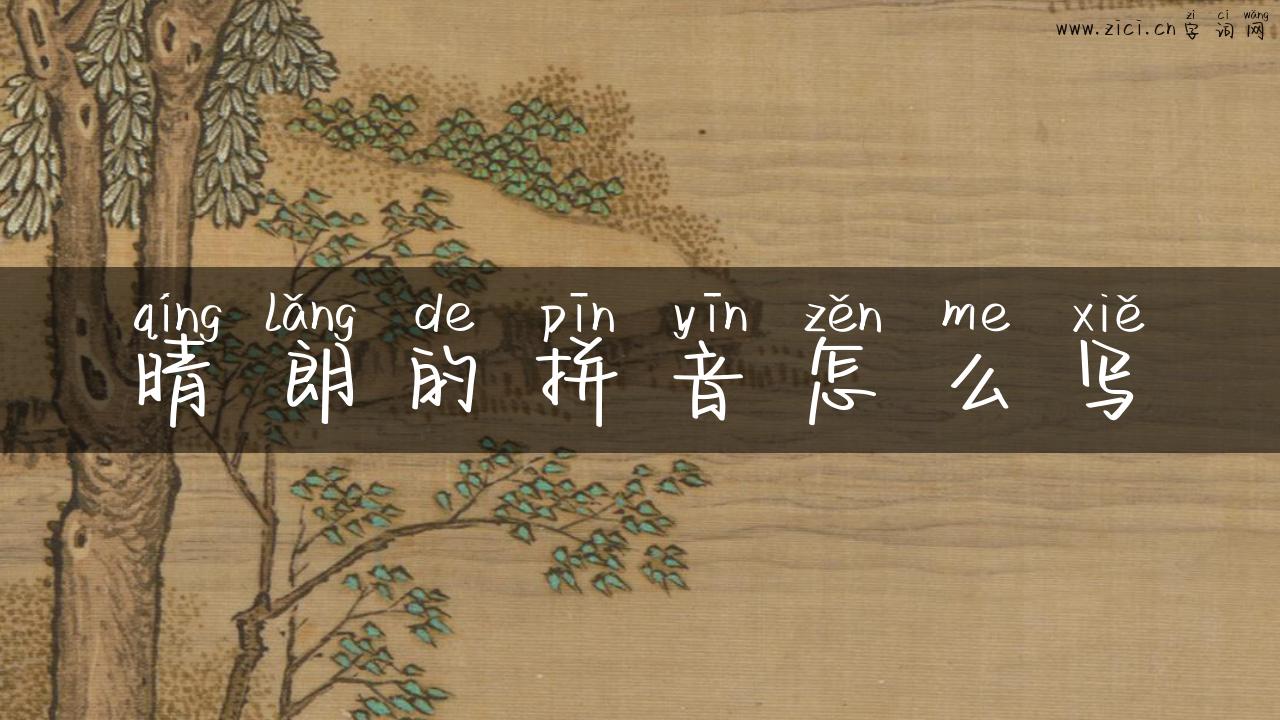 zì cí wǎng
www.zici.cn 字词网
qíng lǎng de pīn yīn zěn me xiě
晴朗的拼音怎么写